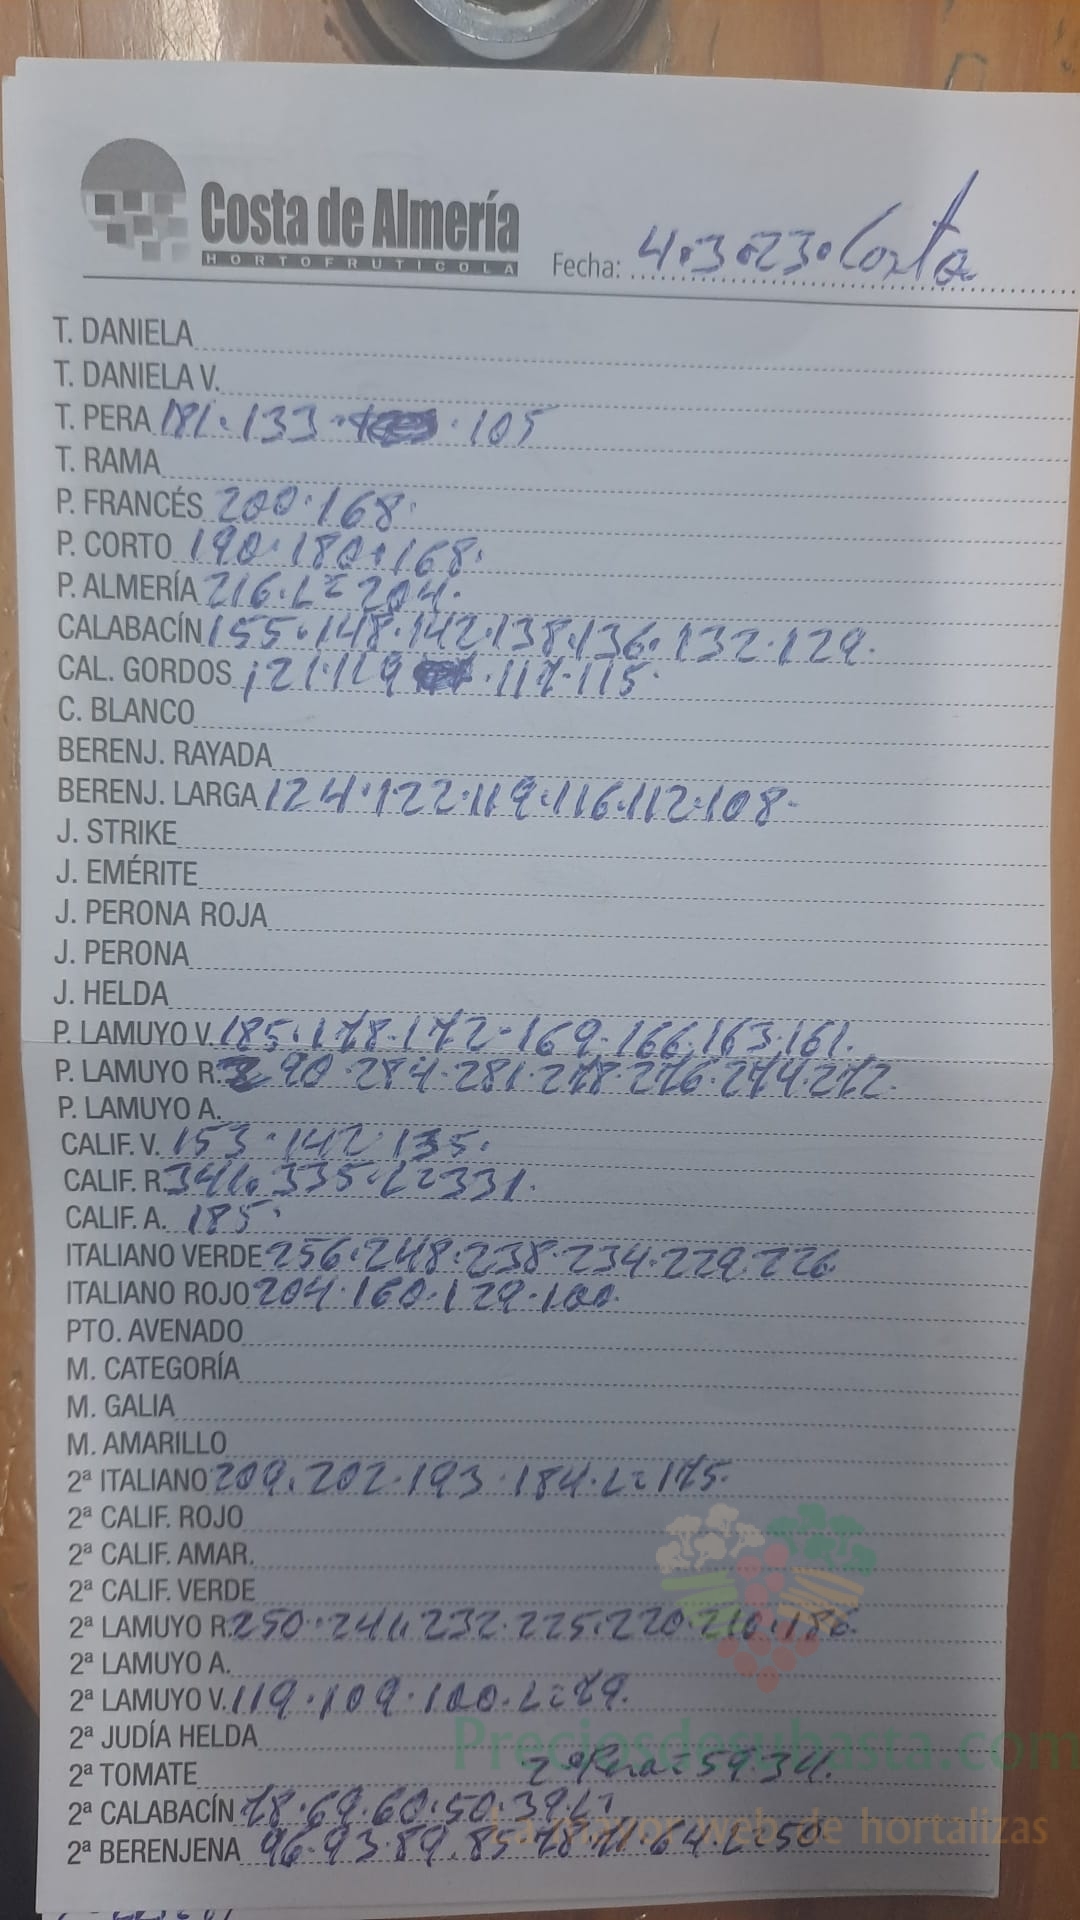 Costa de Almería
HORTOFRUTICOLA
Fecha: 4.3.23. Costa
T. DANIELA
T. DANIELA V.
T. PERA 181.133. .105
T. RAMA
P. FRANCÉS 200.168.
P. CORTO 190.180.168.
P. ALMERÍA 216.L=204.
CALABACÍN 155.148.142.138.136.132.129.
CAL. GORDOS 121.119 .117.115.
C. BLANCO
BERENJ. RAYADA
BERENJ. LARGA 124.122.119.116.112.108.
J. STRIKE
J. EMÉRITE
J. PERONA ROJA
J. PERONA
J. HELDA
P. LAMUYO V. 185.178.172.169.166.163.161.
P. LAMUYO R. 290.284.281.278.276.274.272.
P. LAMUYO A.
CALIF. V. 153.142.135.
CALIF. R. 341.335.L=331.
CALIF. A. 185.
ITALIANO VERDE 256.248.238.234.229.226
ITALIANO ROJO 204.160.129.100.
PTO. AVENADO
M. CATEGORÍA
M. GALIA
M. AMARILLO
2ª ITALIANO 209.202.193.184.L=175.
2ª CALIF. ROJO
2ª CALIF. AMAR.
2ª CALIF. VERDE
2ª LAMUYO R. 250.241.232.225.220.210.186.
2ª LAMUYO A.
2ª LAMUYO V. 119.109.100.L=79.
2ª JUDÍA HELDA
Preciosdesubasta.com
2ª TOMATE 2ª Pera=59.34.
2ª CALABACÍN 78.69.60.50.39.L=
La mayor web de hortalizas
2ª BERENJENA 96.93.89.85.78.71.64.L=50